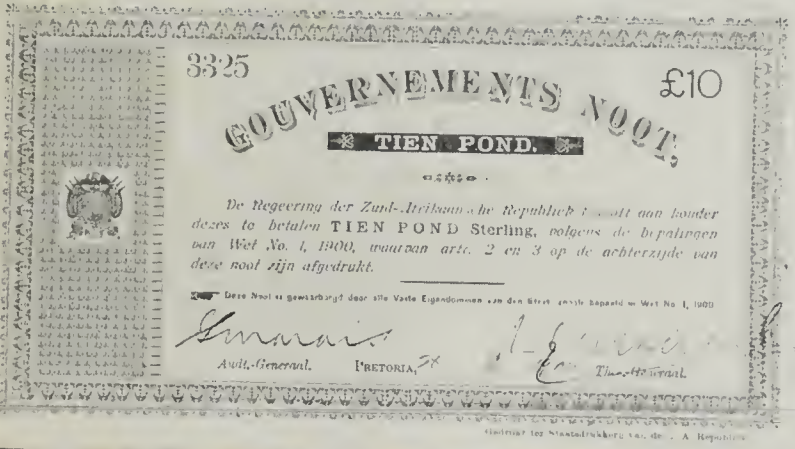 3325 £10
GOUVERNEMENTS NOOT,
TIEN POND.
De Regeering der Zuid-Afrikaansche Republiek aan houder
dezes te betalen TIEN POND Sterling, volgens de bepalingen
van Wet No. 1, 1900, waarvan artt. 2 en 3 op de achterzijde van
deze noot zijn afgedrukt.
Deze Noot is gewaarborgd door alle Vaste Eigendommen van den Staat zooals bepaald in Wet No 1, 1900
Audt.-Generaal. PRETORIA, Thes.-Generaal.
Gedrukt ter Staatsdrukkerij van de A Republiek